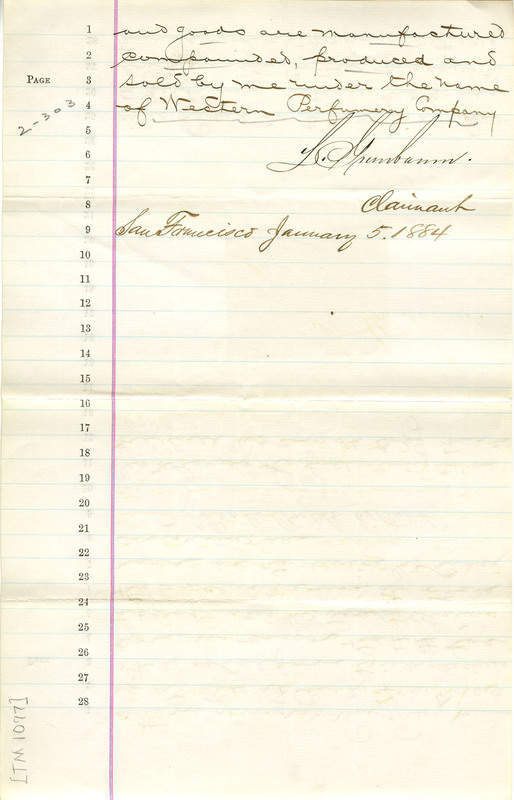 1 and goods are manufactured
2 compounded, produced and
PAGE 3 sold by me under the name
2-303 4 of Western Perfumery Company
5
6 L. Grunbaum.
7
8 Claimant
9 San Francisco January 5. 1884
10
11
12
13
14
15
16
17
18
19
20
21
22
23
24
25
26
27
28
[TM 1097]